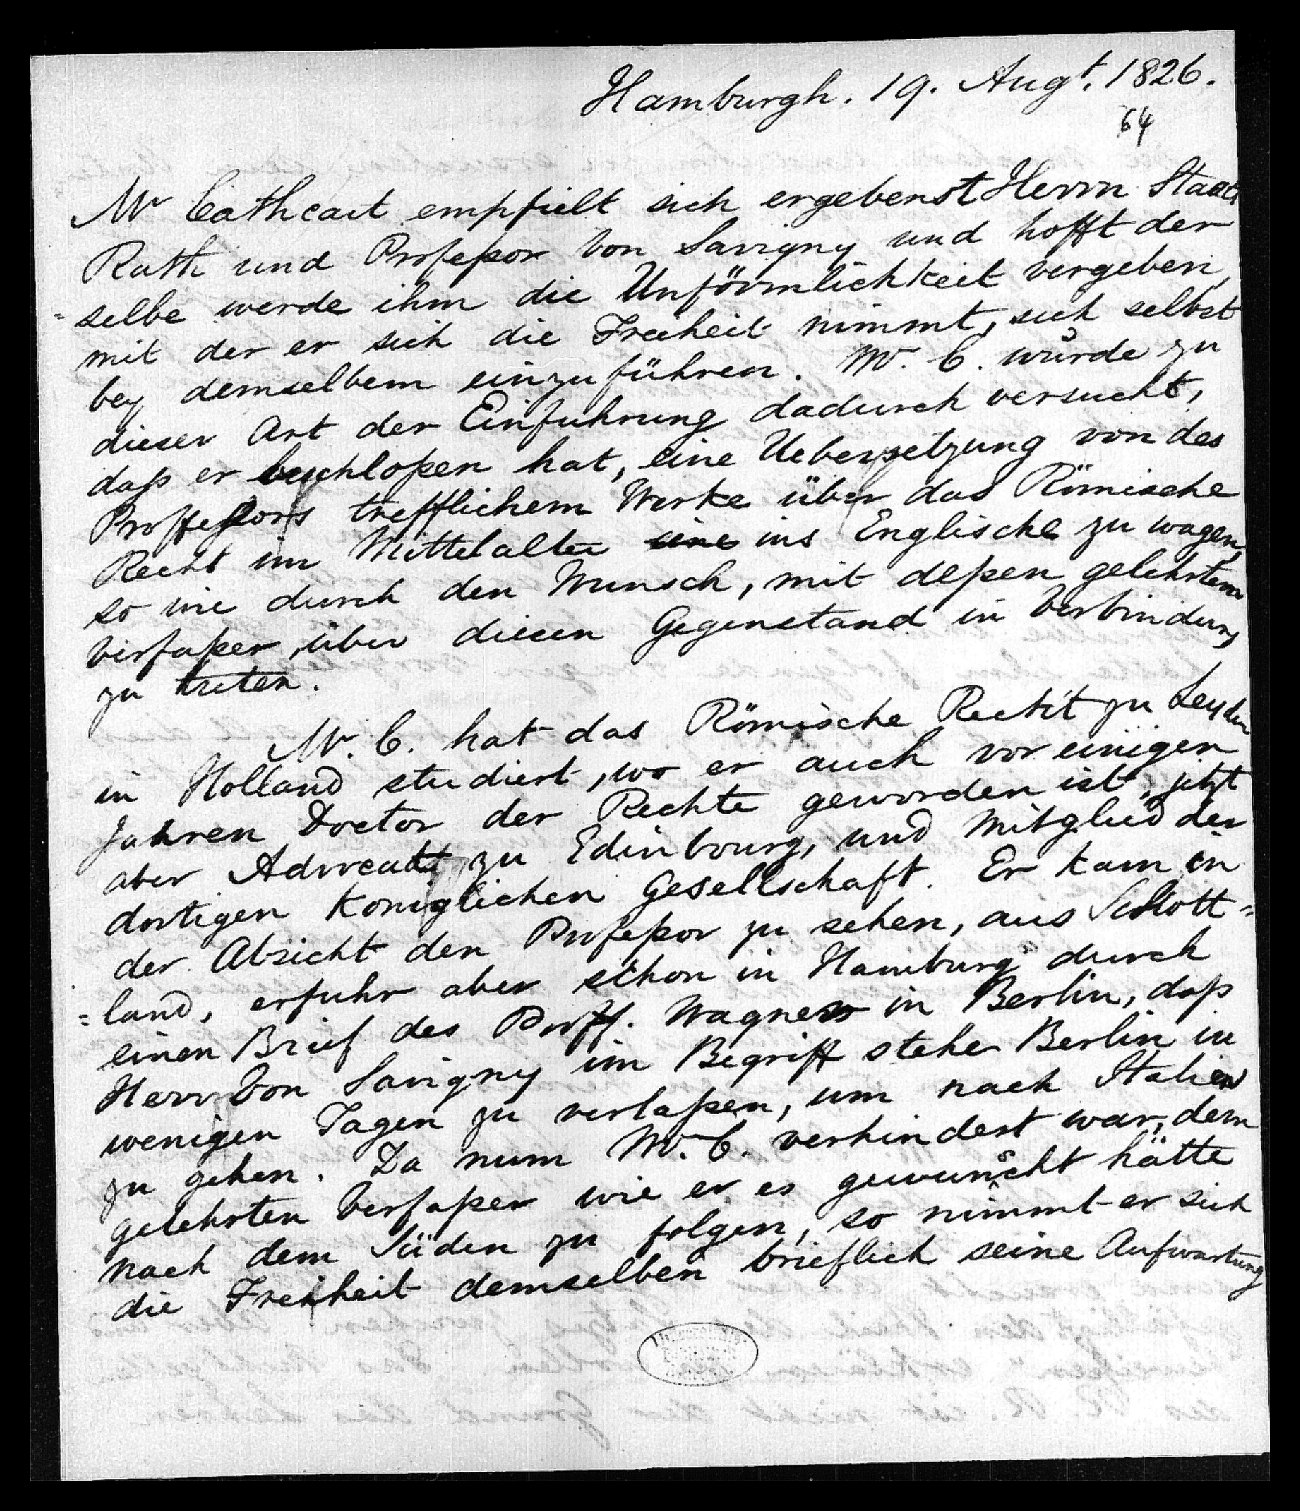 Hamburgh. 19. Augt. 1826.
64
Mr Cathcart empfielt sich ergebenst Herrn Staats
Rath und Professor von Savigny und hofft der
=selbe werde ihm die Unförmlichkeit vergeben,
mit der er sich die Freiheit nimmt, sich selbst
bey demselbem einzuführen. Mr. C. würde zu
dieser Art der Einfuhrung dadurch versucht,
daß er beschloßen hat, eine Uebersetzung von des
Proffessors trefflichem Werke über das Römische
Recht im Mittelalter ins Englische zu wagen,
so wie durch den Wunsch, mit deßen gelehrtem
Verfaßer, über diesen Gegenstand in Verbindung
zu treten.
Mr. C. hat das Römische Recht zu Leyden
in Holland studiert, wo er auch vor einigen
Jahren Doctor der Rechte geworden ist, jetzt
aber Advocatt zu Edinbourg, und Mitglied der
dortigen Koniglichen Gesellschaft. Er kam in
der Absicht den Profeßor zu sehen, aus Schott=
=land, erfuhr aber schon in Hamburg durch
einen Brief des Proff. Wagner in Berlin, daß
Herr von Savigny im Begriff stehe Berlin in
wenigen Tagen zu verlaßen, um nach Italien
zu gehen. Da num Mr. C. verhindert war, dem
gelehrten Verfaßer wie er es gewunscht hätte
nach dem Süden zu folgen, so nimmt er sich
die Freiheit demselben brieflich seine Aufwartung